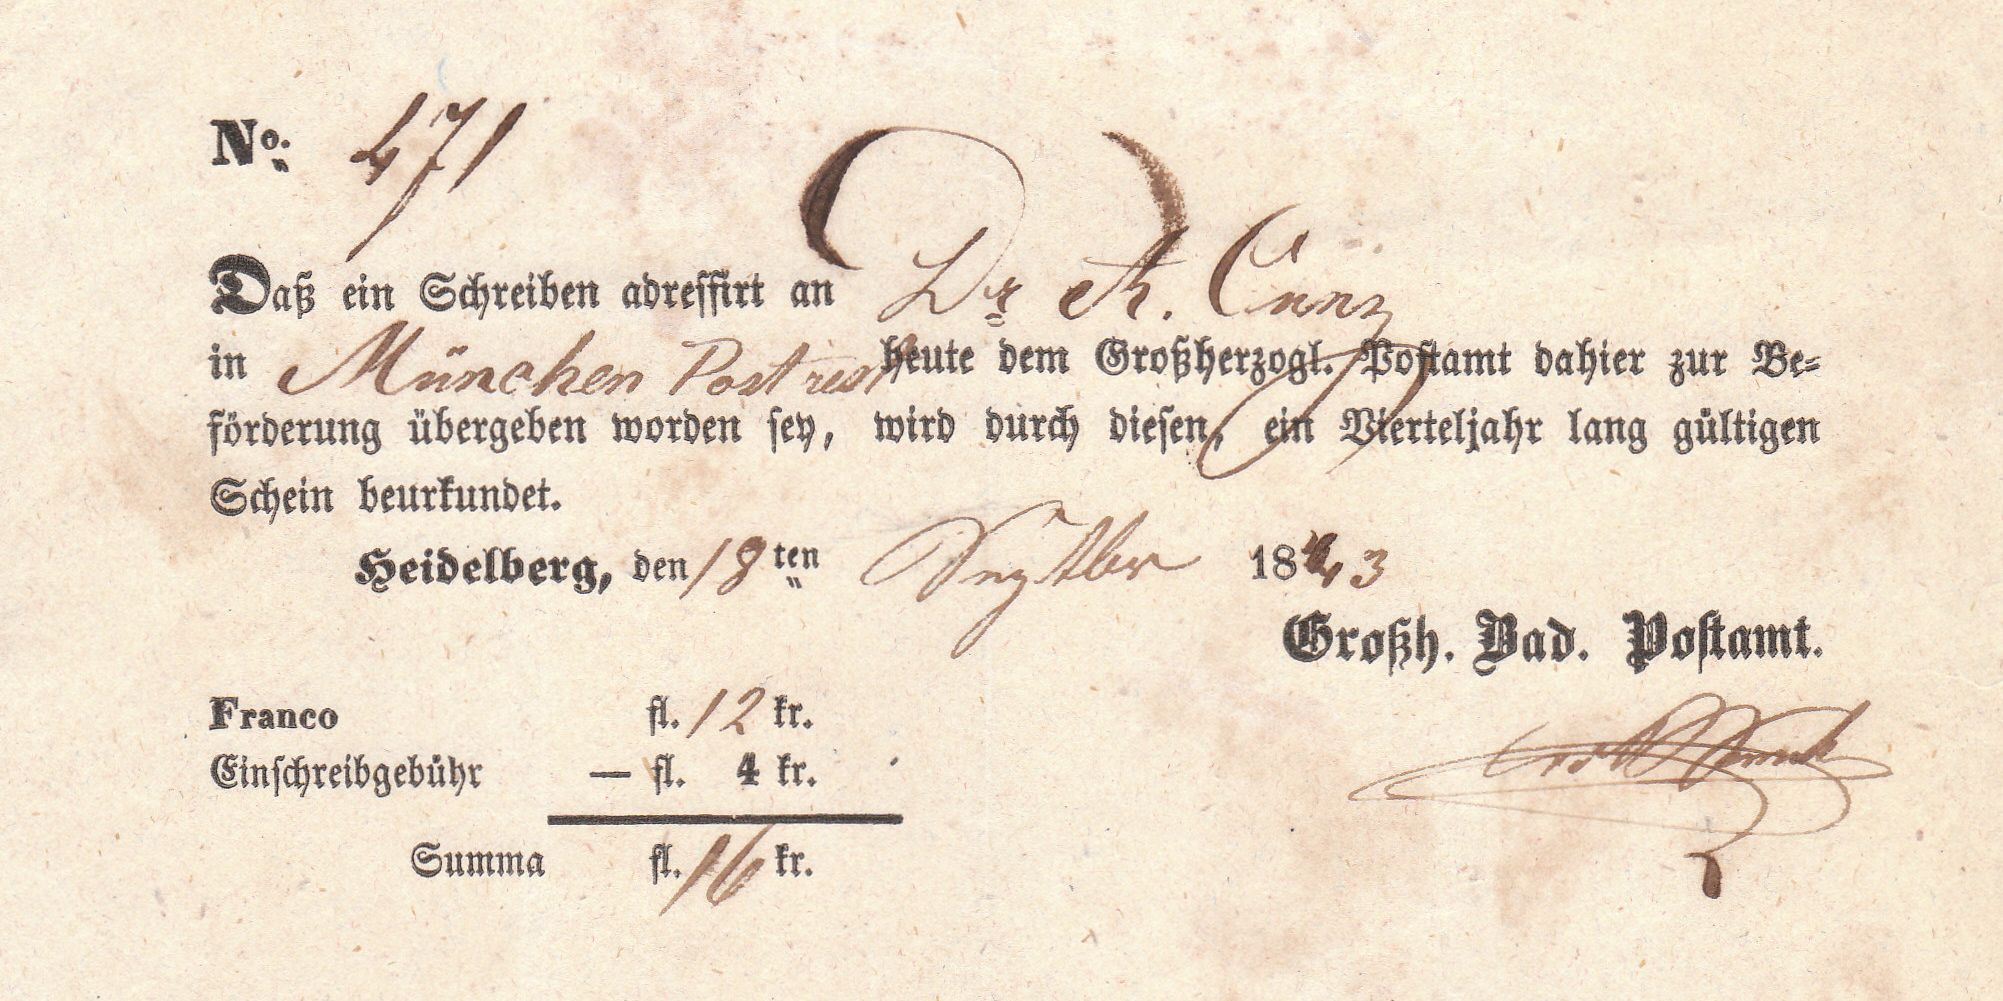 No. 471
Daß ein Schreiben adressirt an Dr. A. Cunz
in München Post rest heute dem Großherzogl. Postamt dahier zur Be=
förderung übergeben worden sey, wird durch diesen, ein Vierteljahr lang gültigen
Schein beurkundet.
Heidelberg, den 18ten Septbr 1843
Großh. Bad. Postamt.
Franco fl. 12 kr.
Einschreibgebühr — fl. 4 kr.
Summa fl. 16 kr.